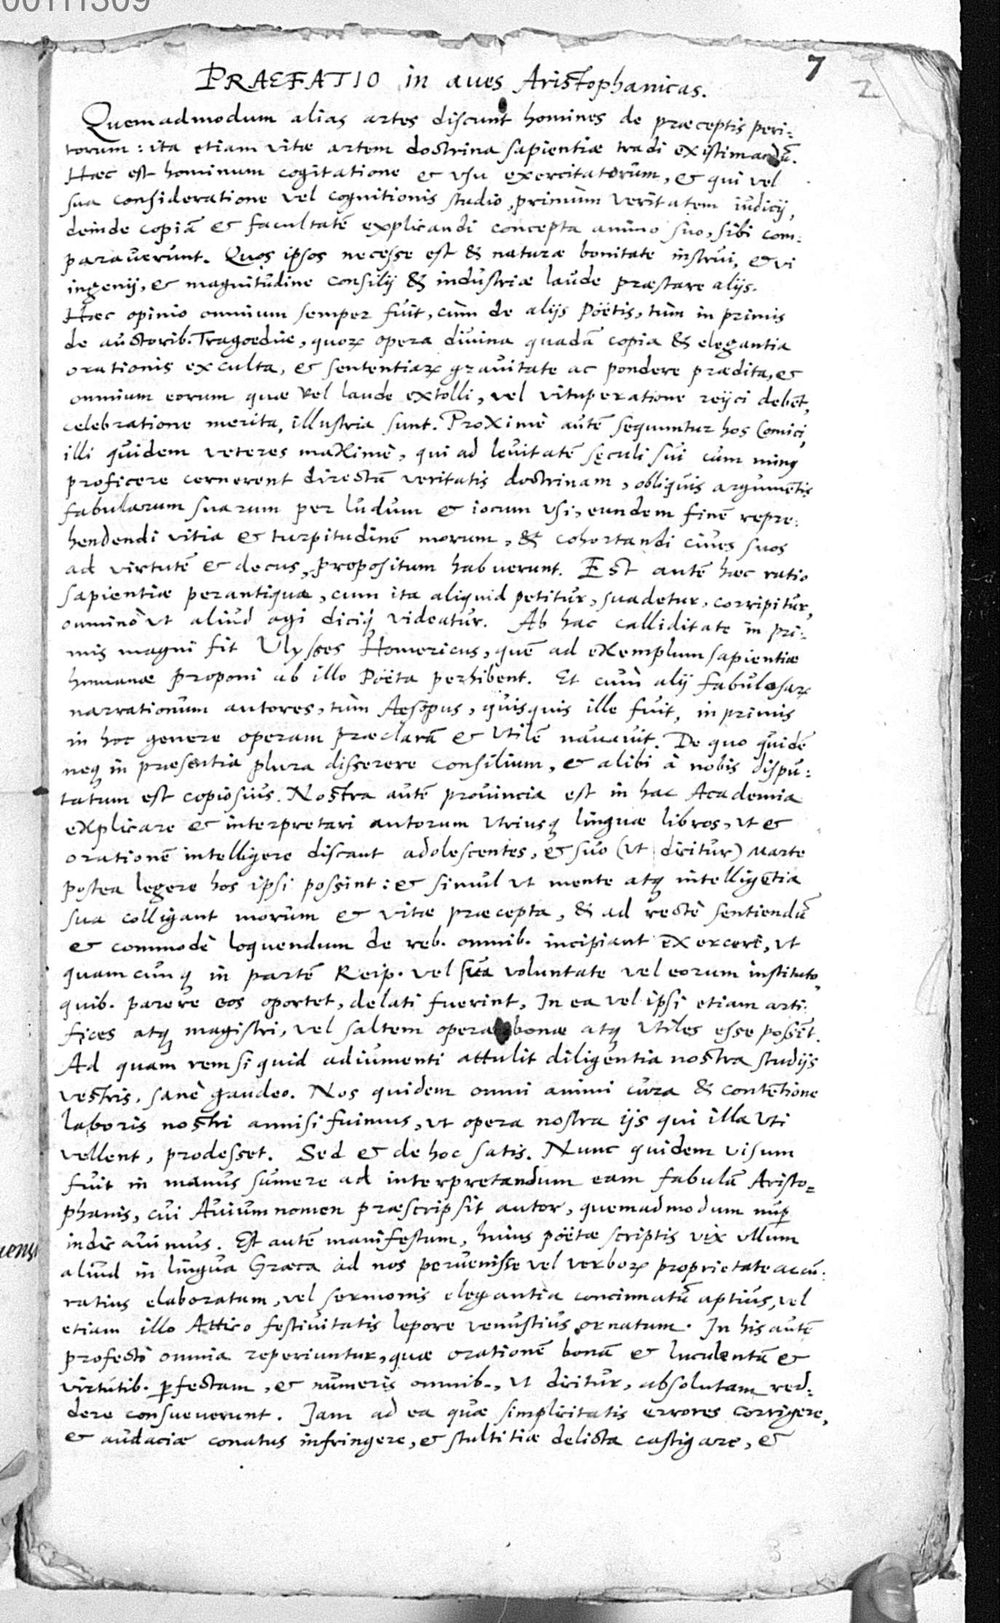 00111309
7
2
PRAEFATIO in aues Aristophanicas.
Quemadmodum alias artes discunt homines de præceptis peri-
torum: ita etiam vitæ artem doctrina sapientiæ tradi existimandũ.
Hæc est hominum cogitatione & vsu exercitatorum, & qui vel
sua consideratione vel cognitionis studio, primùm veritatem iudicij,
deinde copiã & facultatẽ explicandi concepta animo suo, sibi com-
parauerunt. Quos ipsos necesse est & naturæ bonitate instrui, & vi
ingenij, & magnitudine consilij & industriæ laude præstare alijs.
Hæc opinio omnium semper fuit, cùm de alijs Poëtis, tùm in primis
de auctorib. Tragoediæ, quorꝝ opera diuina quadã copia & elegantia
orationis exculta, & sententiarꝝ grauitate ac pondere prædita, &
omnium eorum quæ vel laude extolli, vel vituperatione reijci debẽt,
celebratione merita, illustria sunt. Proximè autẽ sequuntur hos Comici,
illi quidem veteres maximè, qui ad leuitatẽ sęculi sui cùm minꝰ
proficere cernerent directã veritatis doctrinam, obliquis argumẽtis
fabularum suarum per ludum & iocum vsi, eundem finẽ repre-
hendendi vitia & turpitudinẽ morum, & cohortandi ciues suos
ad virtutẽ & decus, propositum habuerunt. Est autẽ hæc ratio
sapientiæ perantiqua, cum ita aliquid petitur, suadetur, corripitur,
omninò vt aliud agi diciq́ videatur. Ab hac calliditate in pri-
mis magni fit Vlysses Homericus, quẽ ad exemplum sapientiæ
humanæ proponi ab illo Poëta perhibent. Et cùm alij fabulosarꝝ
narrationum autores, tùm Aesopus, quisquis ille fuit, in primis
in hoc genere operam præclarã & vtilẽ nauauit. De quo quidẽ
neqꝫ in præsentia plura disserere consilium, & alibi à nobis dispu-
tatum est copiosius. Nostra autẽ prouincia est in hac Academia
explicare & interpretari autorum vtriusqꝫ linguæ libros, vt &
orationẽ intelligere discant adolescentes, & suo (vt dicitur) Marte
postea legere hos ipsi possint: & simul vt mente atqꝫ intelligẽtia
sua colligant morum & vitæ præcepta, & ad rectè sentiendũ
& commodè loquendum de reb. omnib. incipiant exerceri, vt
quamcunqꝫ in partẽ Reip. vel sua voluntate vel eorum instituto,
quib. parere eos oportet, delati fuerint, In ea vel ipsi etiam arti-
fices atqꝫ magistri, vel saltem operæ bonæ atqꝫ vtiles esse possĩt.
Ad quam rem si quid adiumenti attulit diligentia nostra studijs
vestris, sanè gaudeo. Nos quidem omni animi cura & contẽtione
laboris nostri annisi fuimus, vt opera nostra ijs qui illa vti
vellent, prodesset. Sed & de hoc satis. Nunc quidem visum
fuit in manus sumere ad interpretandum eam fabulã Aristo-
phanis, cui Auium nomen præscripsit autor, quemadmodum nuꝑ
indicauimus. Est autẽ manifestum, huius poëtæ scriptis vix vllum
aliud in lingua Græca ad nos peruenisse vel verborꝝ proprietate accu-
ratius elaboratum, vel sermonis elegantia concinnatũ aptius, vel
etiam illo Attico festiuitatis lepore venustius ornatum. In his autẽ
profectò omnia reperiuntur, quæ orationẽ bonã & luculentã &
virtutib. ꝑfectam, & numeris omnib., vt dicitur, absolutam red-
dere consueuerunt. Jam ad ea quæ simplicitatis errores corrigere,
& audaciæ conatus infringere, & stultitiæ delicta castigare, &